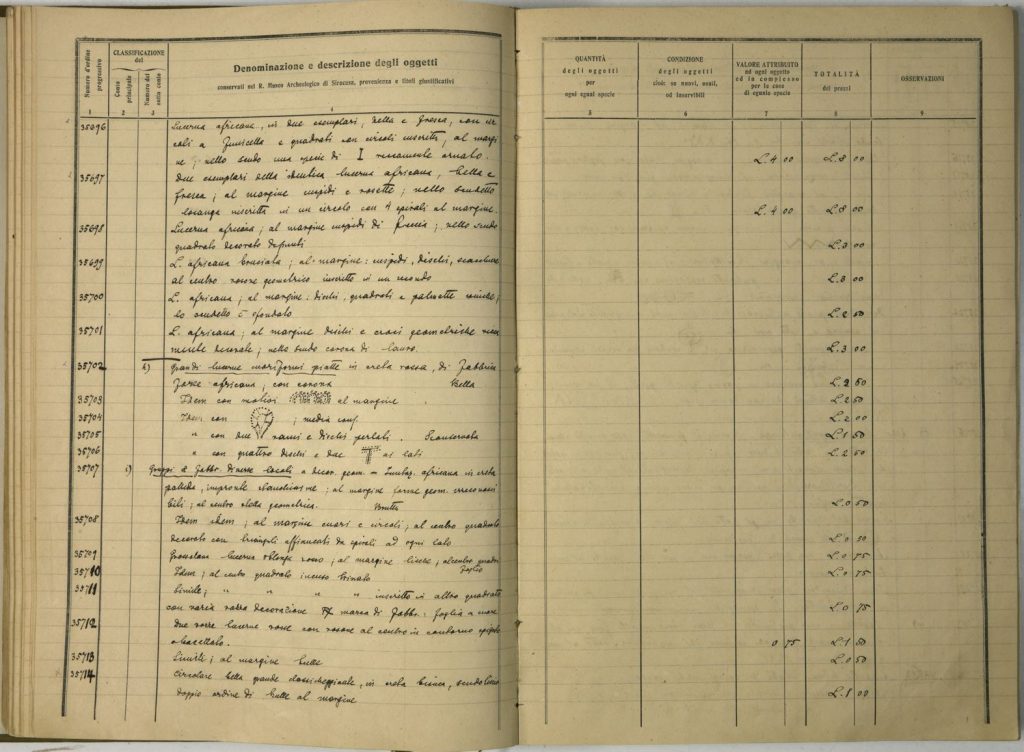 Numero d'ordine progressivo
CLASSIFICAZIONE del
Conto principale
Numero del sotto conto
Denominazione e descrizione degli oggetti
conservati nel R. Museo Archeologico di Siracusa, provenienza e titoli giustificativi
1 2 3 4
35696 Lucerna africana, in due esemplari, bella e fresca, con cir
coli a e quadrati con circoli inscritti, al margi
ne; nello scudo una specie di I riccamente ornato.
35697 Due esemplari della identica lucerna africana, bella e
fresca; al margine cuspidi e rosette; nello scudetto
losanga inscritta in un circolo con 4 spirali al margine.
35698 Lucerna africana; al margine cuspidi di freccia; nello scudo
quadrato decorato
35699 L. africana bruciata; al margine: cuspidi, dischi,
al centro rosone geometrico inscritto in un
35700 L. africana; al margine: dischi, quadrati e palmette
lo scudetto è sfondato
35701 L. africana; al margine dischi e croci geometriche ricca
mente decorate; nello scudo corona di lauro.
35702 Grandi lucerne cuoriformi piatte in creta rossa, di fabbrica
forse africana; con corona Bella
35703 Idem con motivi al margine
35704 Idem con ; media conf.
35705 " con due rami e dischi perlati. Sconservata
35706 " con quattro dischi e due ai lati
35707 Gruppi di fabbr. diverse locali a decor. geom. = Imitaz. africana in creta
pallida, impronte ; al margine forme geom. irriconosci
bili; al centro stella geometrica. Brutta
35708 Idem idem; al margine cuori e circoli; al centro quadrato
decorato con triangoli affiancati da spirali ad ogni lato
35709 lucerna oblunga ; al margine liscia, al centro
foglio
35710 Idem; al centro quadrato
35711 Simile; " " " " inscritto in altro quadrato
con varia decorazione marca di fabbr: foglia a cuore
35712 Due rozze lucerne rosse con rosone al centro in contorno
o baccellato.
35713 Simili; al margine bulle
35714 Circolare bella grande classicheggiante, in creta bianca, scudo liscio
doppio ordine di bulle al margine
QUANTITÀ
degli oggetti
per
ogni egual specie
CONDIZIONE
degli oggetti
cioè: se nuovi, usati,
od inservibili
VALORE ATTRIBUITO
ad ogni oggetto
ed in complesso
per le cose
di eguale specie
TOTALITÀ
dei prezzi
OSSERVAZIONI
5 6 7 8 9
L. 4 00 L. 8 00
L. 4 00 L. 8 00
L. 3 00
L. 3 00
L. 2 50
L. 3 00
L. 2 50
L. 2 50
L. 2 00
L. 1 50
L. 2 50
L. 0 50
L. 0 50
L. 0 75
L. 0 75
L. 0 75
0 75 L. 1 50
L. 0 50
L. 1 00